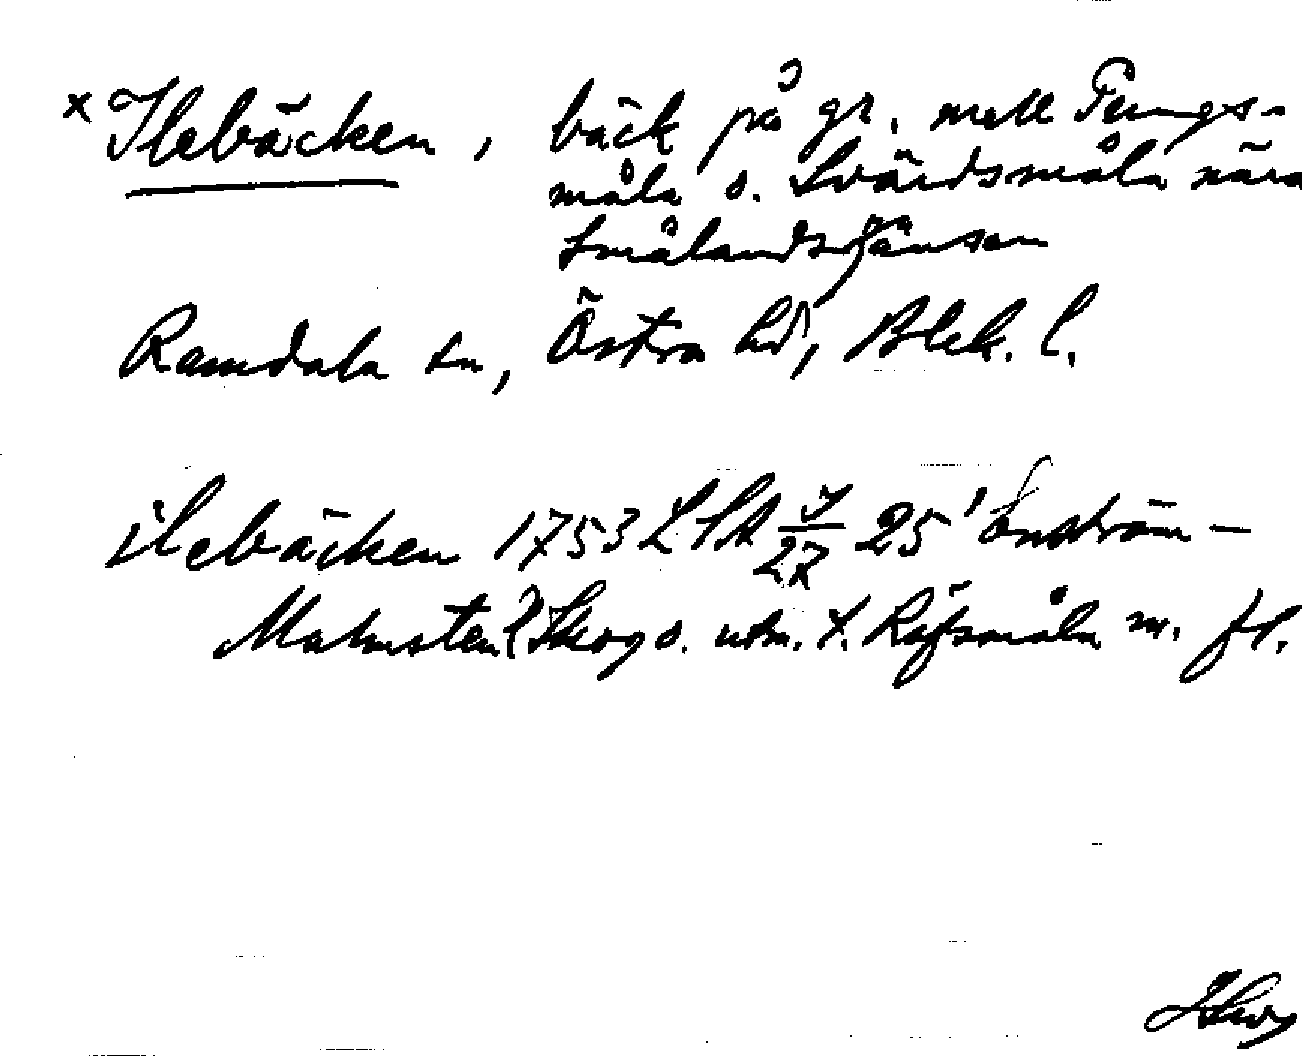 x Ilebäcken, bäck på gr. mell Pungs-
måla o. Svärdsmåla nära
Smålandsgränsen
Ramdala sn, Östra hd, Blek. l.
ilebäcken 1753 LSA 27 25
Malmsten Skog o. utm. t. Räfsmåla m. fl.